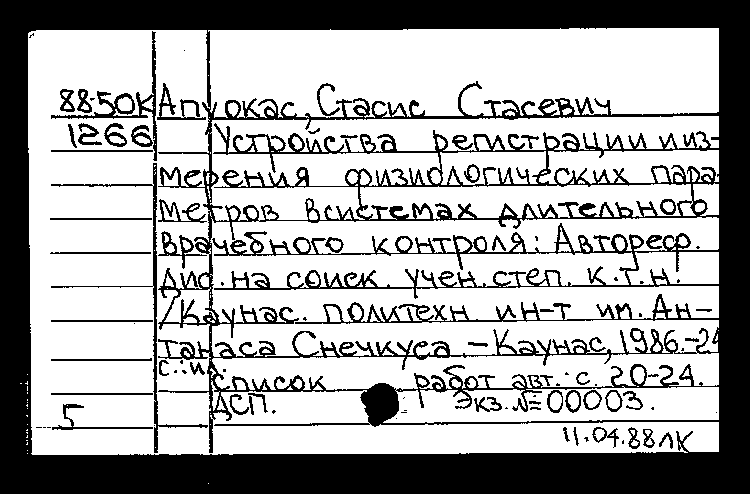 88-50К Апуокас, Стасис Стасевич
1266 Устройства регистрации и из-
мерения физиологических пара-
метров в системах длительного
врачебного контроля: Автореф.
дис. на соиск. учен. степ. к.т.н.
/Каунас. политехн. ин-т им. Ан-
танаса Снечкуса. – Каунас, 1986.-24
с.: ил.
Список работ авт.: с. 20-24.
ДСП. Экз. №00003.
5
11.04.88 ЛК